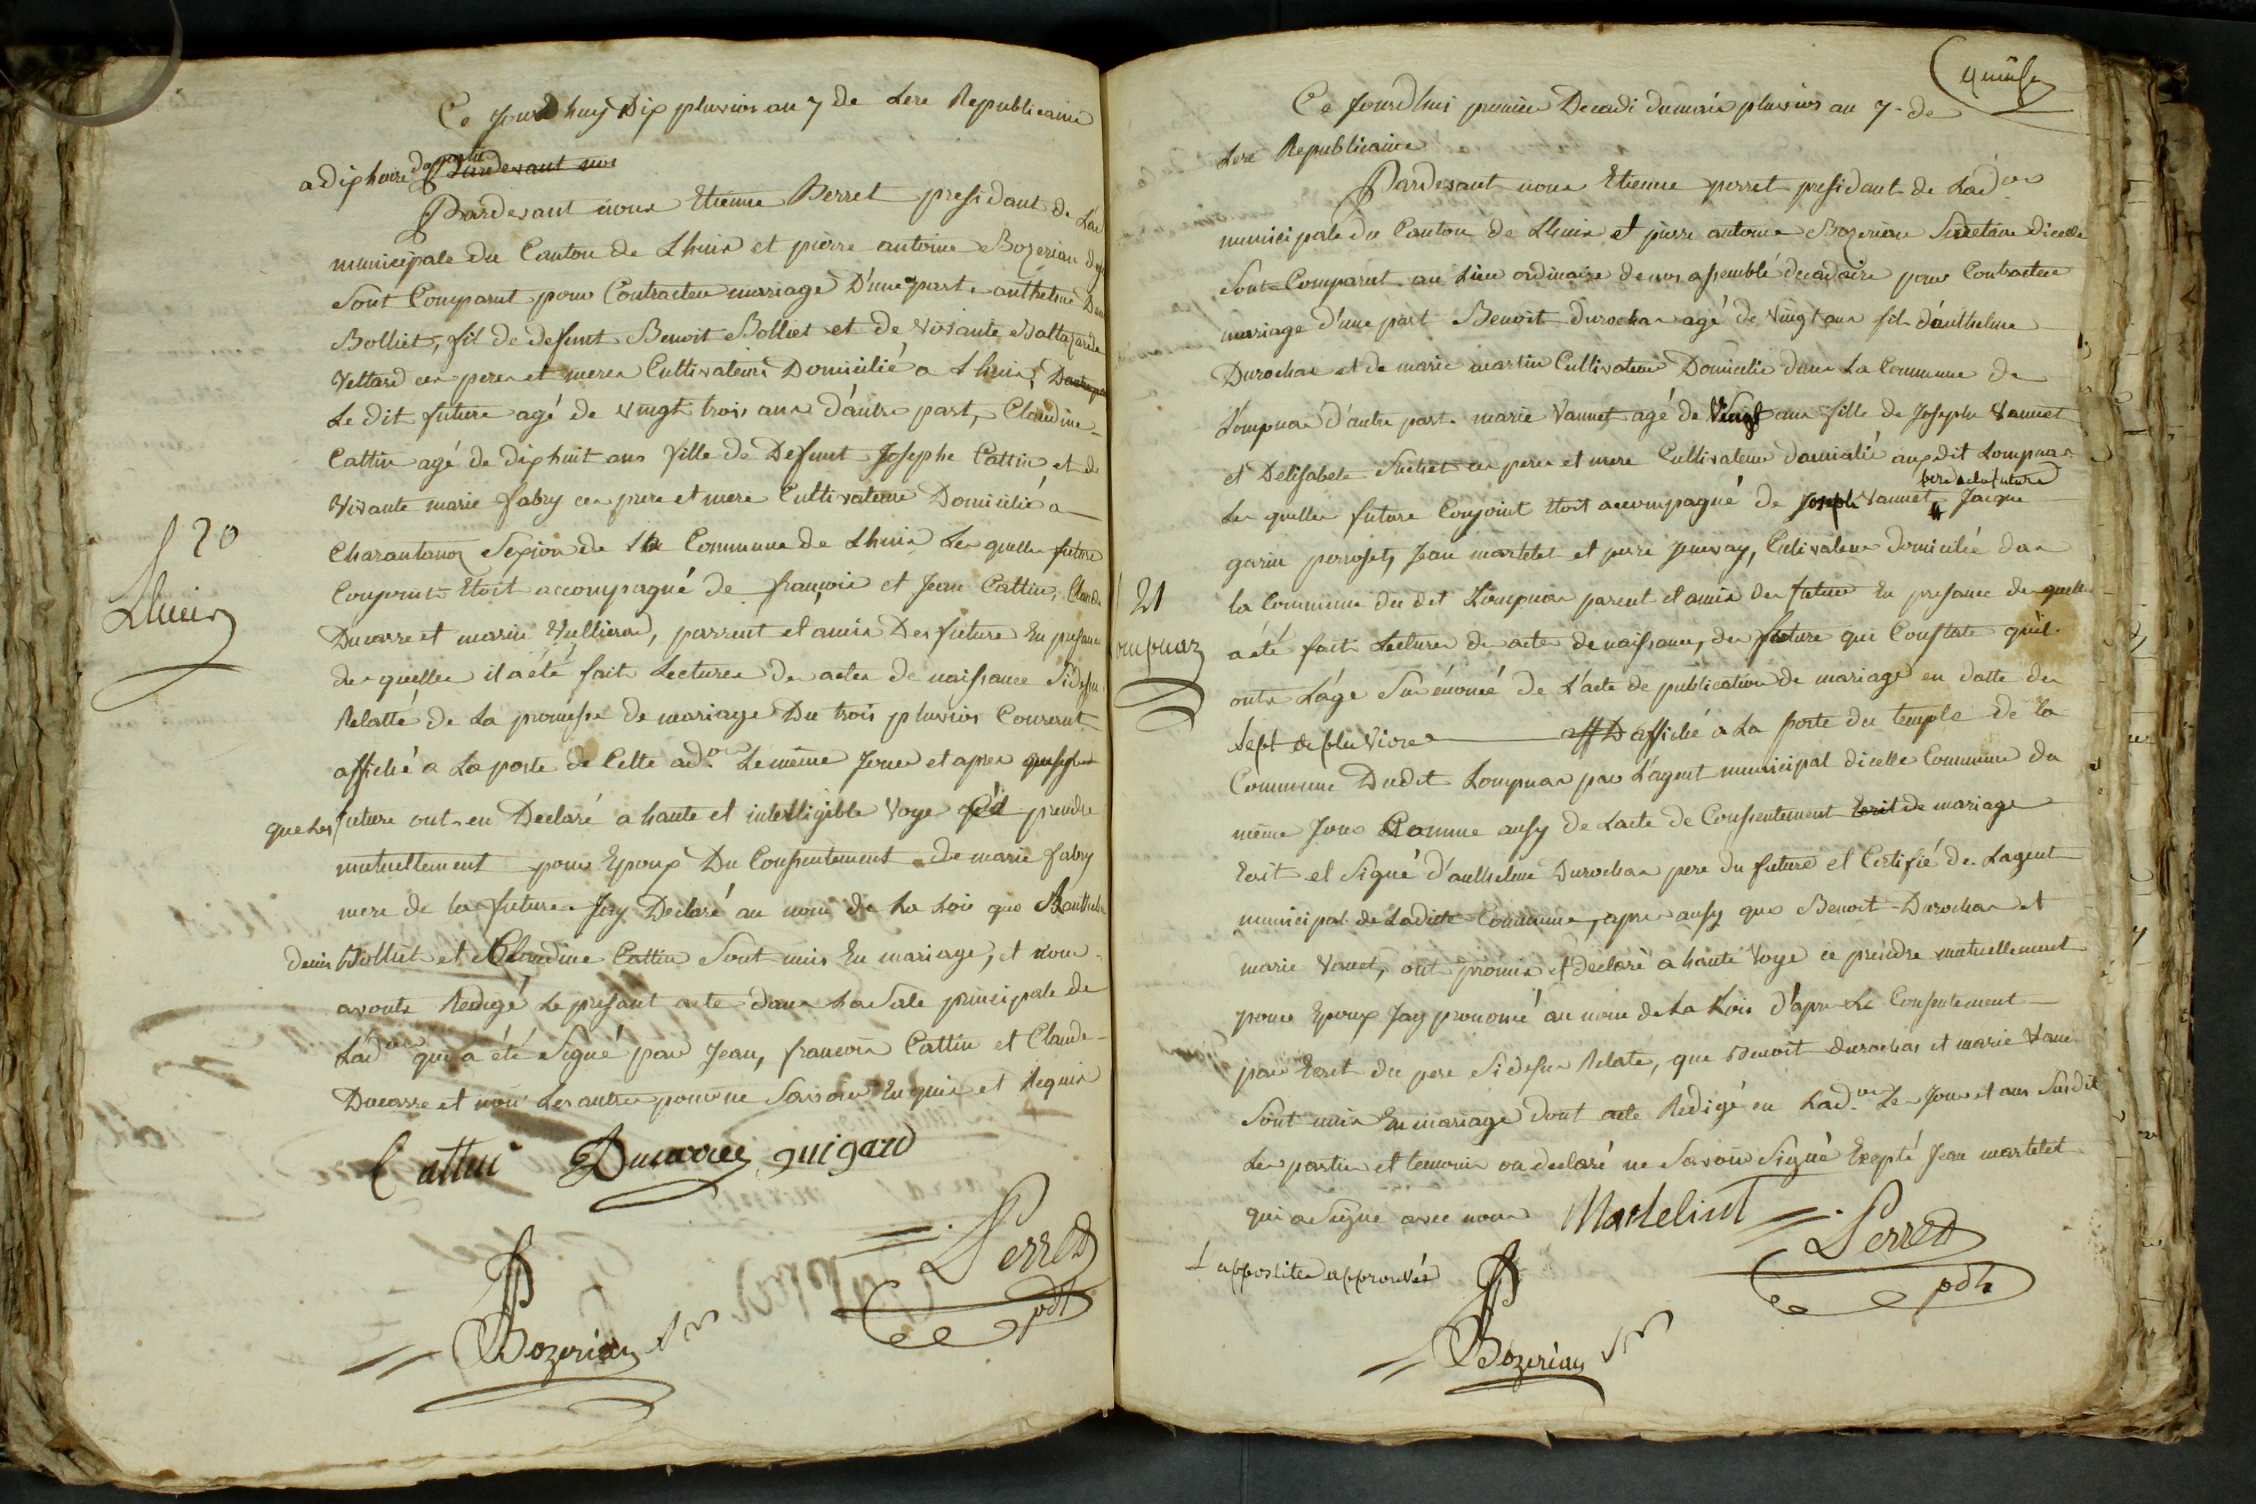 Ce jourdhuy Dix pluvios an 7 de Lere Republicaine
a dix heure
Pardevant nous
Pardevant nous Etienne Perret presidant de Lad
municipale du Canton de Lhuis et pierre antoine Bozerian
Sont Comparut pour Contracter mariage D'une part. anthelme Denis
Bolliet, fil de defunt Benoit Bolliet et de vivante Baltazarde
Vettard ces peres et meres Cultivateurs Domicilié a Lhuis,
Le dit future agé de vingt trois ans d'autre part, Claudine
Cattin agé de dix huit ans fille de Defunt Josephe Cattin et de
Vivante marie fabry ces pere et mere Cultivateurs Domicilié a
Charantanoz Sexion de la Commune de Lhuis Les quelles future
Conjoint Etoit accompagné de françois et Jean Cattin, Claude
Ducarre et marie Vullierod, parrent et amis Des future En presance
des quelles il a été fait Lectures des actes de naissance Sidessus
Relatté de La promesse de mariage Du trois pluvios Courant
affiché a La porte de Cette ad.on Le même Jour et apres
que Les future ont en Declaré a haute et intelligible Voye prendre
mutuellement pour Epoux Du Consentement de marie fabry
mere de la future Jay Declaré au nom de La Loi que anthelme
denis Bolliet et Claudine Cattin Sont unis En mariage, et nous
avonts Redigé Le presant acte dans La Sale principale de
Lad.on qui a été Signé par Jean, françois Cattin et Claude
Ducarre et non Les autres pour ne Savoir Enquis et Requis
20
Lhuis
Cattin Ducarre guigard
Perret
pdt
Bozerian
quinse
Ce Jourdhui premier Decadi du mois pluvios an 7. de
Lere Republicaine
Pardevant nous Etienne perret presidant de Lad.on
municipale du Canton de Lhuis et pierre antoine Bozerian Secretaire dicelle
Sont Comparut au Lieu ordinaire de nos assemblé decadaire pour Contracter
mariage d'une part Benoit durochas agé de vingt ans fil d'anthelme
Durochas et de marie martin Cultivateur Domicilie dans La Commune de
Lompnas d'autre part. marie Vannet agé de Vingt ans fille de Josephe Vannet
et Delisabete Suchet ces peres et mere Cultivateur domicilié auxdit Lompnas
pere de la future
Les quelles future Conjoint Etoit accompagné de Joseph Vannet Jacque
garin perroset, Jean martelet et pierre Jenevay, Cultivateur domicilié dans
la Commune du dit Lompnas parent et amis des future En presance des quelles
21
Lompnaz
a été fait Lectures des actes de naissance, des future qui Constate quil
onts L'age Sus énoncé de L'acte de publication de mariage en datte du
Sept de pluviose affiché a La porte du temple de la
Commune Dudit Lompnas par L'agent municipal dicelle Commune du
même Jour Comme ausy de Lacte de Consentement Ecrit de mariage
Ecrit et Signé d'anthelme Durochas pere du future et Certifié de Lagent
municipal de Ladite Commune, apres ausy que Benoit Durochas et
marie Vanet, ont promis et declaré a haute Voye ce prendre mutuellement
pour Epoux Jay prononcé au nom de La Lois d'apres Le Consentement
par Ecrit du pere Sidessus Relate, que Benoit durochas et marie Vane
Sont unis En mariage dont acte Redigé en Lad.on Les Jour et ans Susdit
Les partis et temoins on declaré ne Savoir Signé Exepté Jean martelet
qui a Signé avec nous Martelint Perret
pdt
L appostiles approuvés
Bozerian